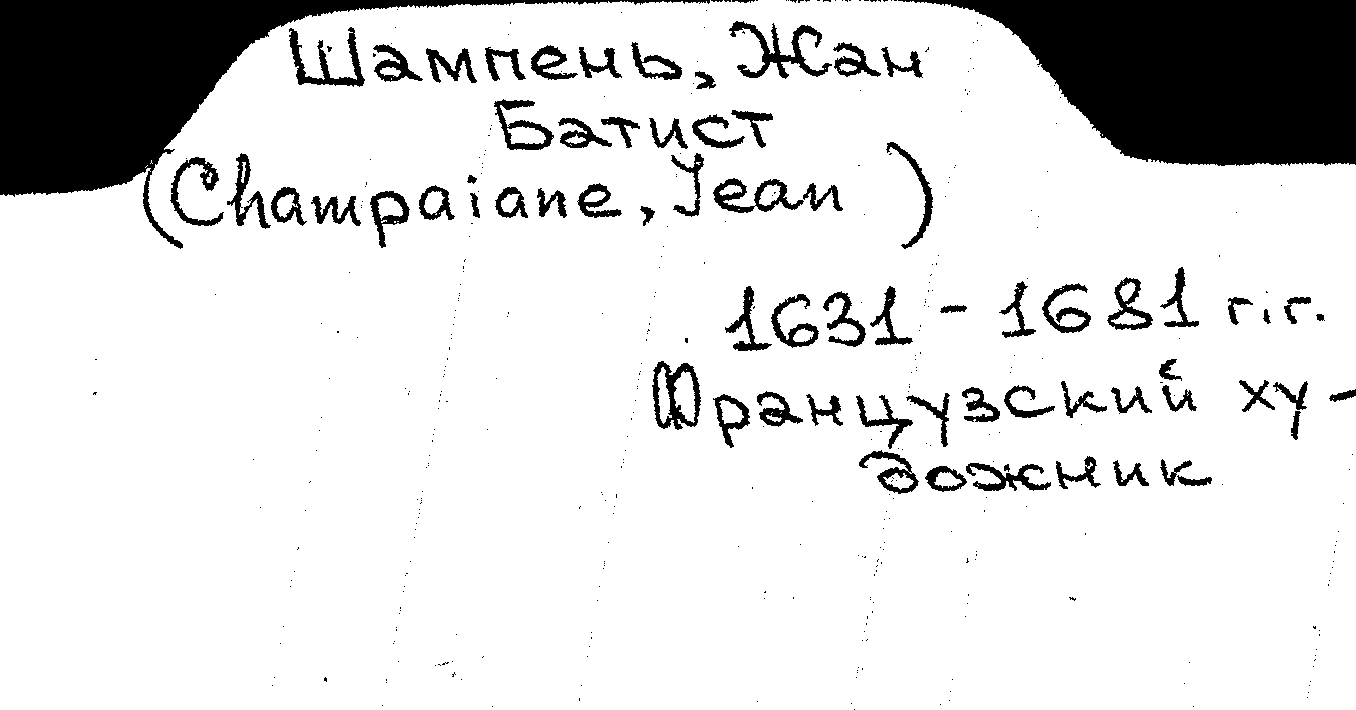 Шампень, Жан
Батист
(Champaiane, Jean)
1631 - 1681 г.г.
Французский ху-
дожник